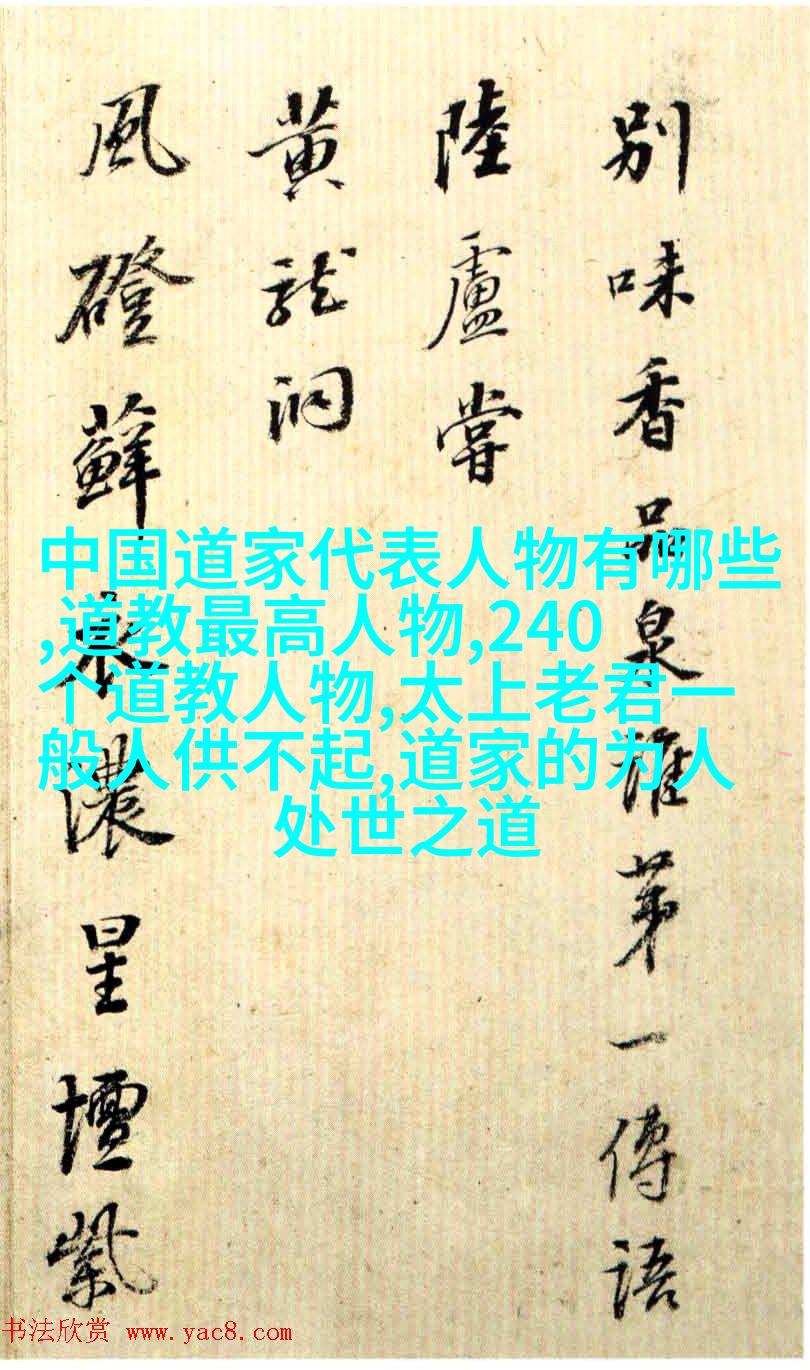 别味香品泉谁第一傳語
陸盧嘗
黄龍洞
風磴蘚衣濃星壇紫
中国道家代表人物有哪些
,道教最高人物,240
个道教人物,太上老君一
般人供不起,道家的为人
处世之道
书法欣赏 www.yac8.com